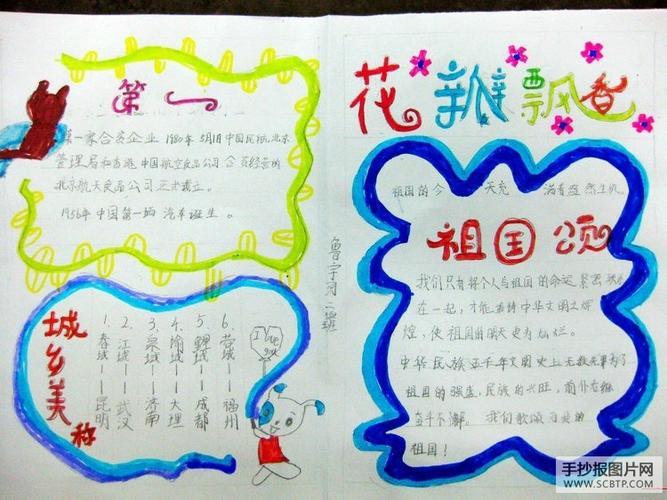 花瓣飘香
第一
第一家合资企业 1980年5月1日 中国民航北京
管理局和香港中国航空食品公司合资经营的
北京航天食品公司正式成立。
1956年中国第一辆汽车诞生。
祖国的今天充满着盎然生机。
祖国颂
我们只有将个人与祖国的命运紧密联系
在一起，才能看待中华文明之辉
煌，使祖国的明天更为灿烂。
中华民族五千年文明史上无数先辈为了
祖国的强盛，民族的兴旺，前仆后继
奋斗不懈。我们歌颂
祖国！
城乡美称
1、春城——昆明
2、江城——武汉
3、泉城——济南
4、榆城——大理
5、蓉城——成都
6、榕城——福州
I love you
鲁宇习 二班
手抄报图片网
WWW.SCBTP.COM